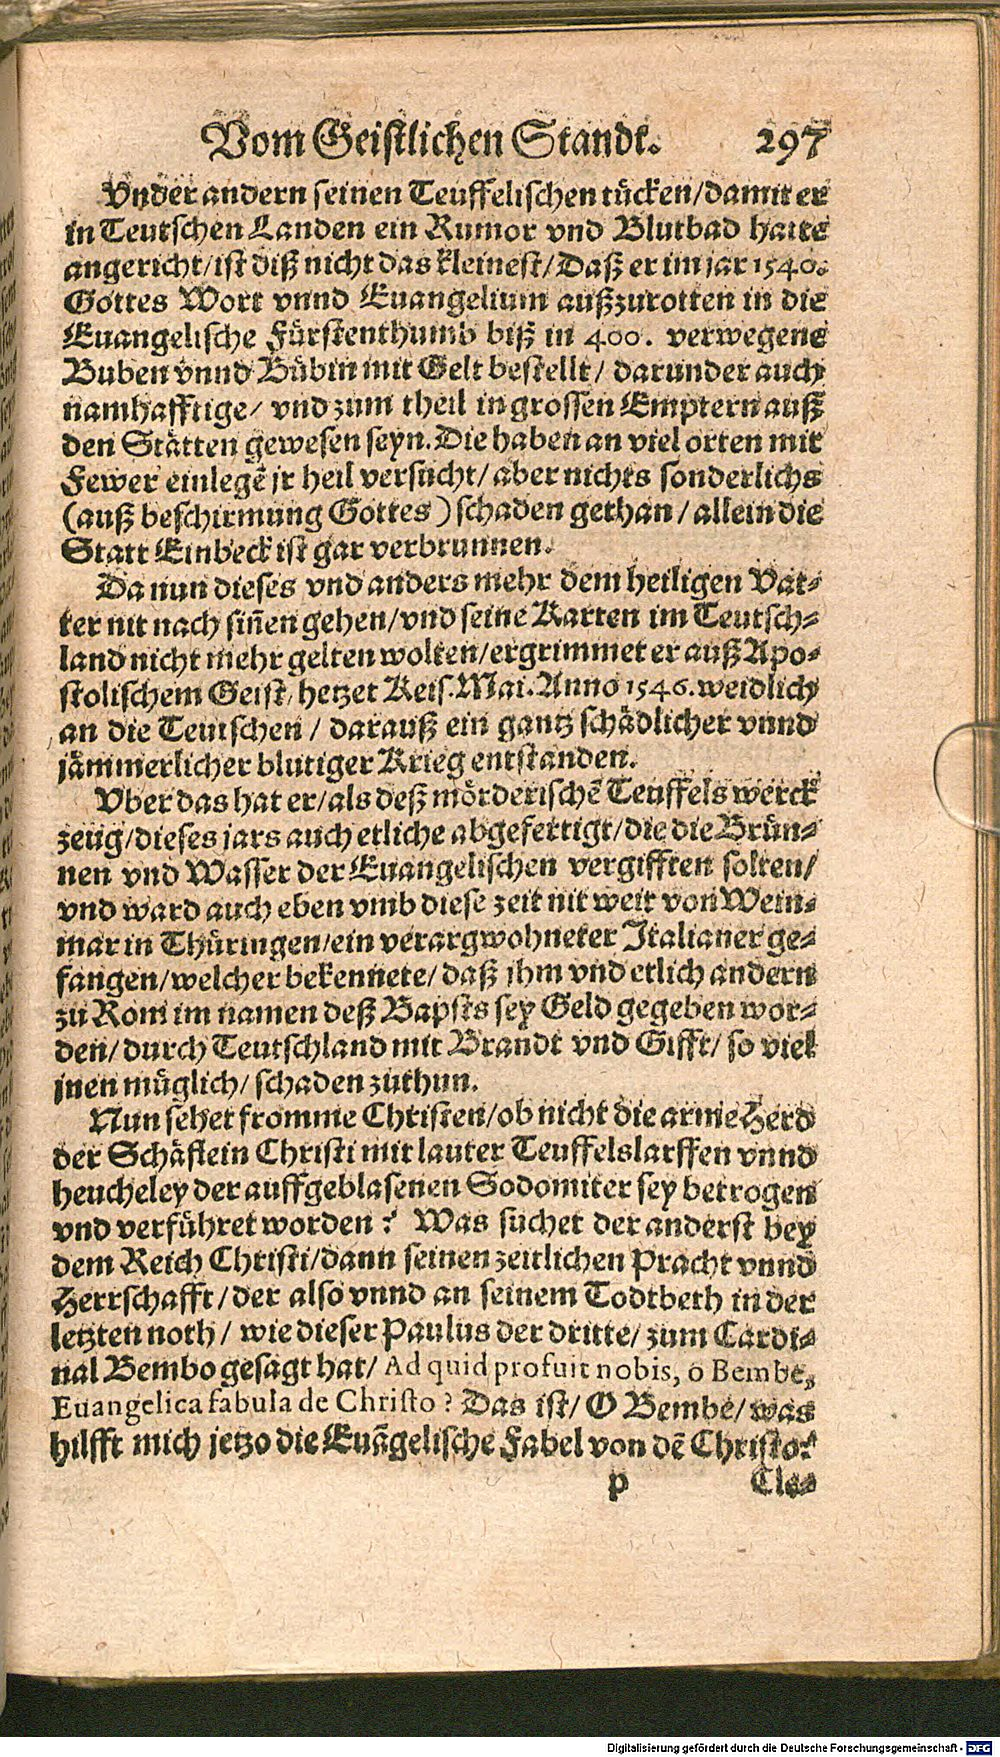 Vom Geistlichen Standt. 297
Vnder andern seinen Teuffelischen tücken/damit er
in Teutschen Landen ein Rumor vnd Blutbad hatte
angericht/ist diß nicht das kleinest/Daß er im jar 1540.
Gottes Wort vnnd Euangelium außzurotten in die
Euangelische Fürstenthumb biß in 400. verwegene
Buben vnnd Bübin mit Gelt bestellt/ darunder auch
namhafftige/ vnd zum theil in grossen Emptern auß
den Stätten gewesen seyn. Die haben an viel orten mit
Fewer einlegē jr heil versucht/ aber nichts sonderlichs
(auß beschirmung Gottes) schaden gethan/ allein die
Statt Einbeck ist gar verbrunnen.
Da nun dieses vnd anders mehr dem heiligen Vat-
ter nit nach siñen gehen/vnd seine Karten im Teutsch-
land nicht mehr gelten wolten/ergrimmet er auß Apo-
stolischem Geist/ hetzet Keis. Mai. Anno 1546. weidlich
an die Teutschen/ darauß ein gantz schädlicher vnnd
jämmerlicher blutiger Krieg entstanden.
Vber das hat er/als deß mörderischē Teuffels werck
zeug/dieses jars auch etliche abgefertigt/die die Brün-
nen vnd Wasser der Euangelischen vergifften solten/
vnd ward auch eben vmb diese zeit nit weit von Wein-
mar in Thüringen/ein verargwohneter Italianer ge-
fangen/welcher bekennete/daß ihm vnd etlich andern
zu Rom im namen deß Bapsts sey Geld gegeben wor-
den/ durch Teutschland mit Brandt vnd Gifft/ so viel
jnen müglich/ schaden zuthun.
Nun sehet fromme Christen/ob nicht die arme Herd
der Schäflein Christi mit lauter Teuffelslarffen vnnd
heucheley der auffgeblasenen Sodomiter sey betrogen
vnd verführet worden? Was suchet der anderst bey
dem Reich Christi/dann seinen zeitlichen Pracht vnnd
Herrschafft/der also vnnd an seinem Todtbeth in der
letzten noth/ wie dieser Paulus der dritte/ zum Cardi-
nal Bembo gesagt hat/ Ad quid profuit nobis, o Bembe,
Euangelica fabula de Christo? Das ist/ O Bembe/ was
hilfft mich jetzo die Euāgelische Fabel von dē Christo?
p Cle-
Digitalisierung gefördert durch die Deutsche Forschungsgemeinschaft - DFG